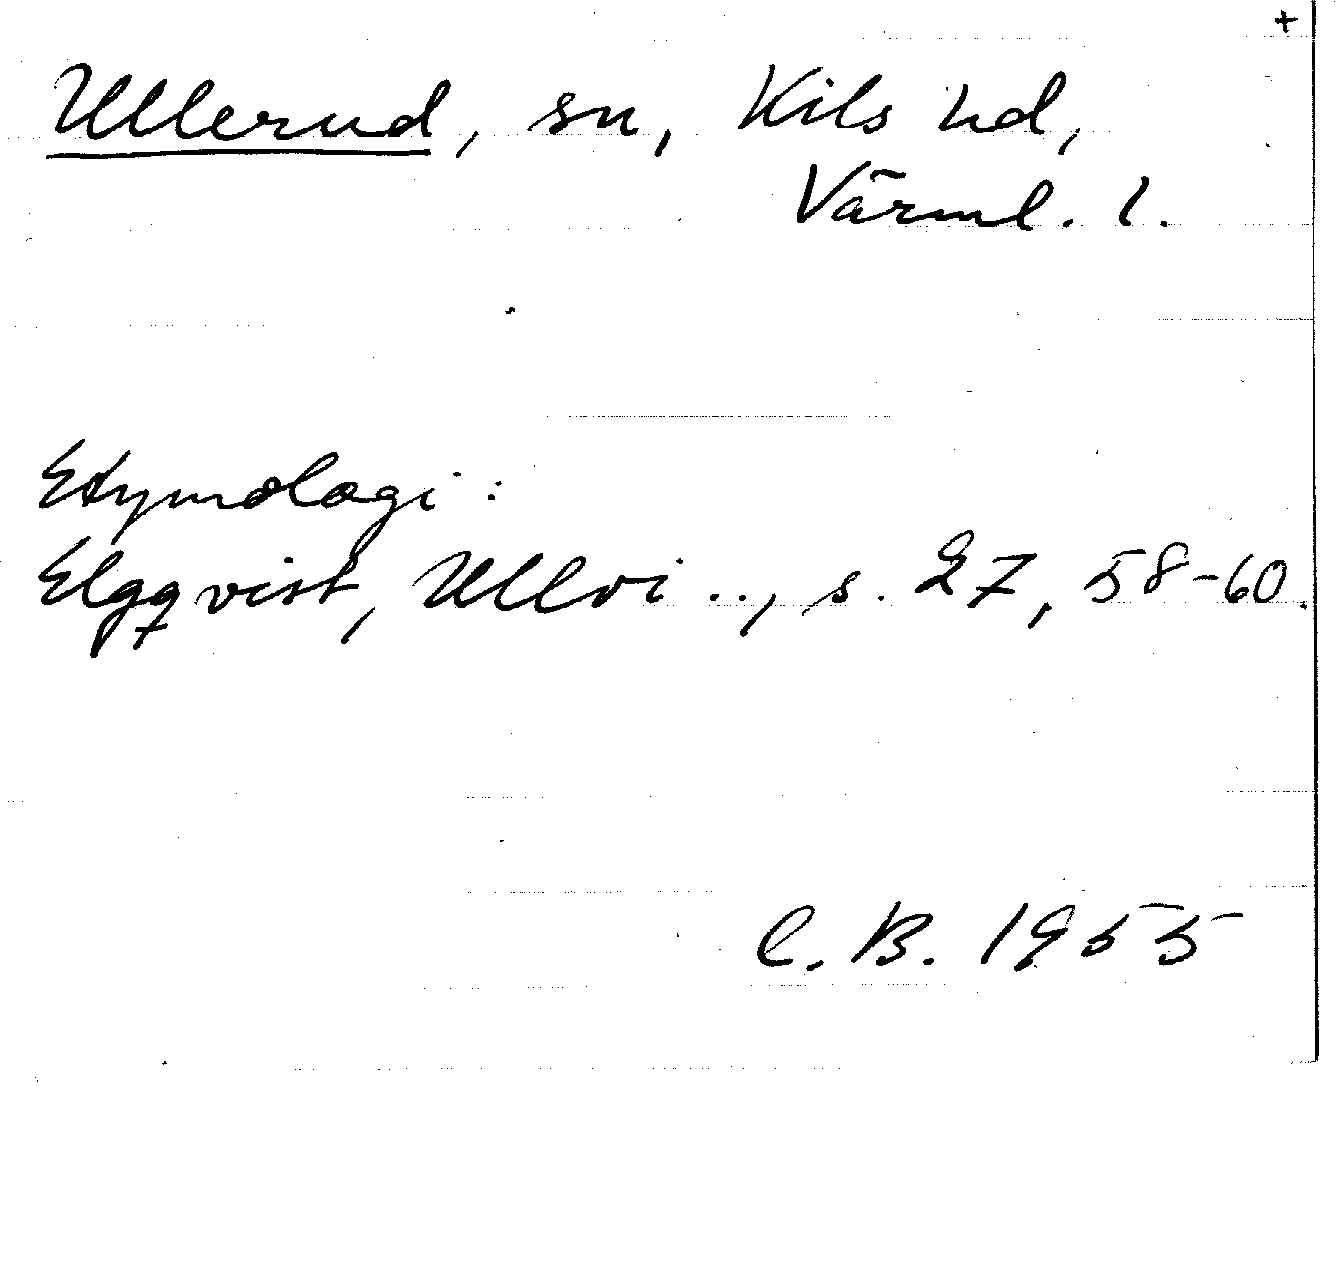 +
Ullerud, sn, Kils hd,
Värml. l.
Etymologi:
Elgqvist, Ullvi .., s. 27, 58-60.
C. B. 1955